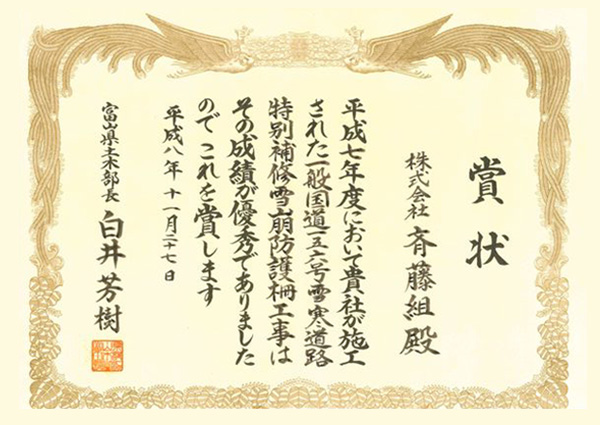 賞状
株式会社 斉藤組殿
平成七年度において貴社が施工
された一般国道一五六号雪寒道路
特別補修雪崩防護柵工事は
その成績が優秀でありました
ので これを賞します
平成八年 十一月二十七日
富山県土木部長 白井芳樹